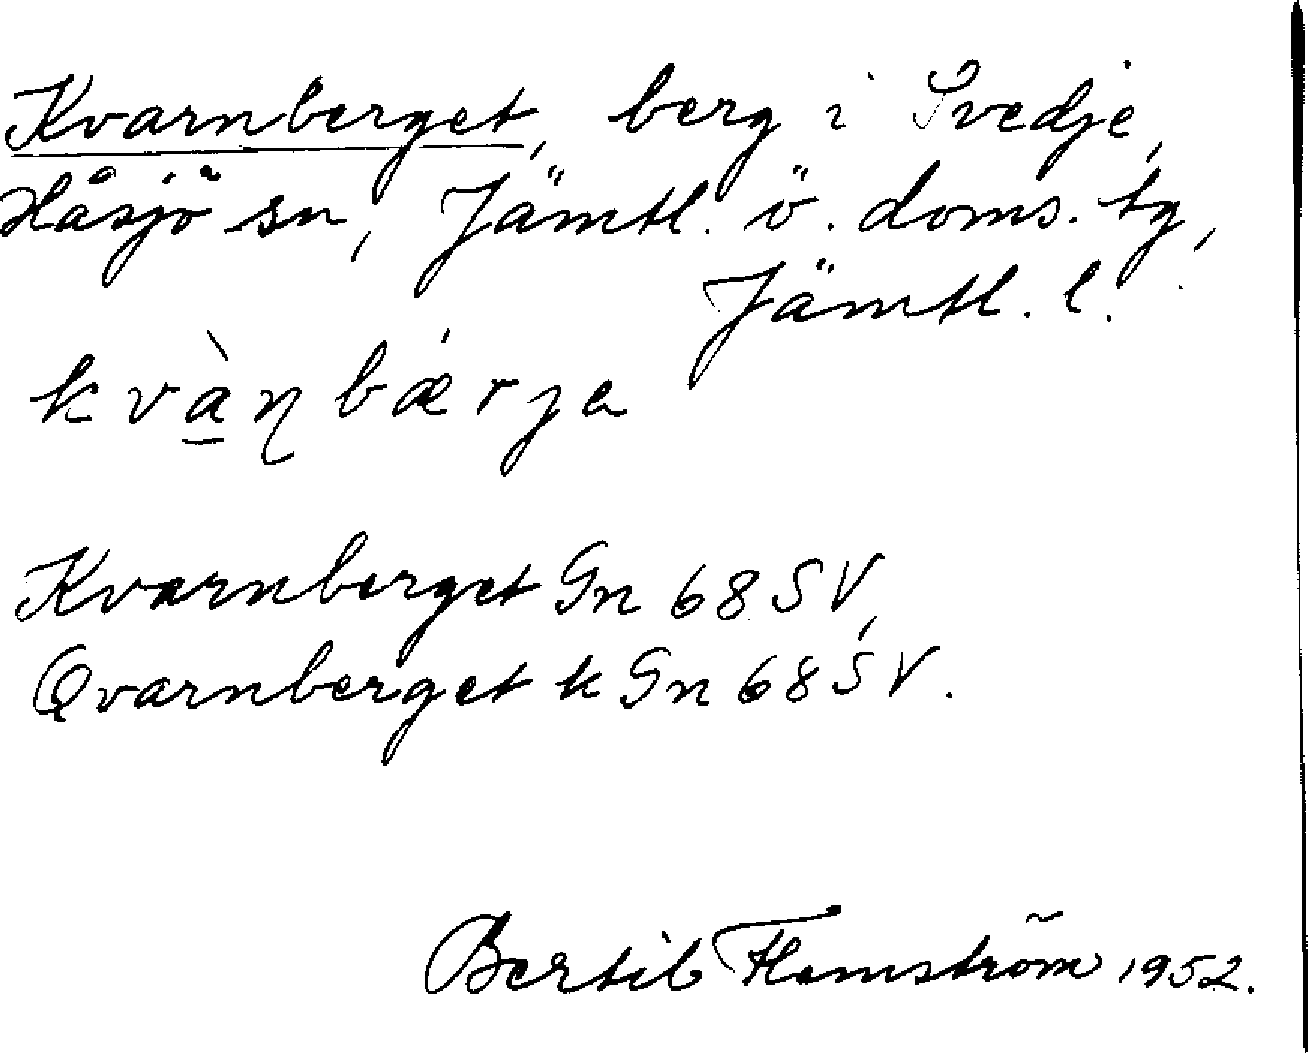 Kvarnberget, berg i Svedje,
Håsjö sn, Jämtl. ö. doms. tg,
Jämtl. l.
kvàņbǽrja
Kvarnberget Gn 68 SV,
Qvarnberget k Gn 68 SV.
Bertil Flemström 1952.